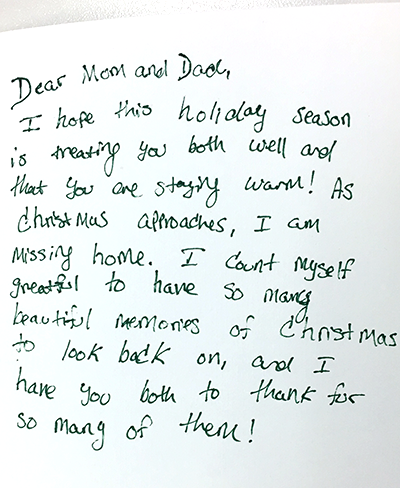 Dear Mom and Dad,
I hope this holiday season
is treating you both well and
that you are staying warm! As
Christmas approaches, I am
missing home. I count myself
greatful to have so many
beautiful memories of Christmas
to look back on, and I
have you both to thank for
so many of them!